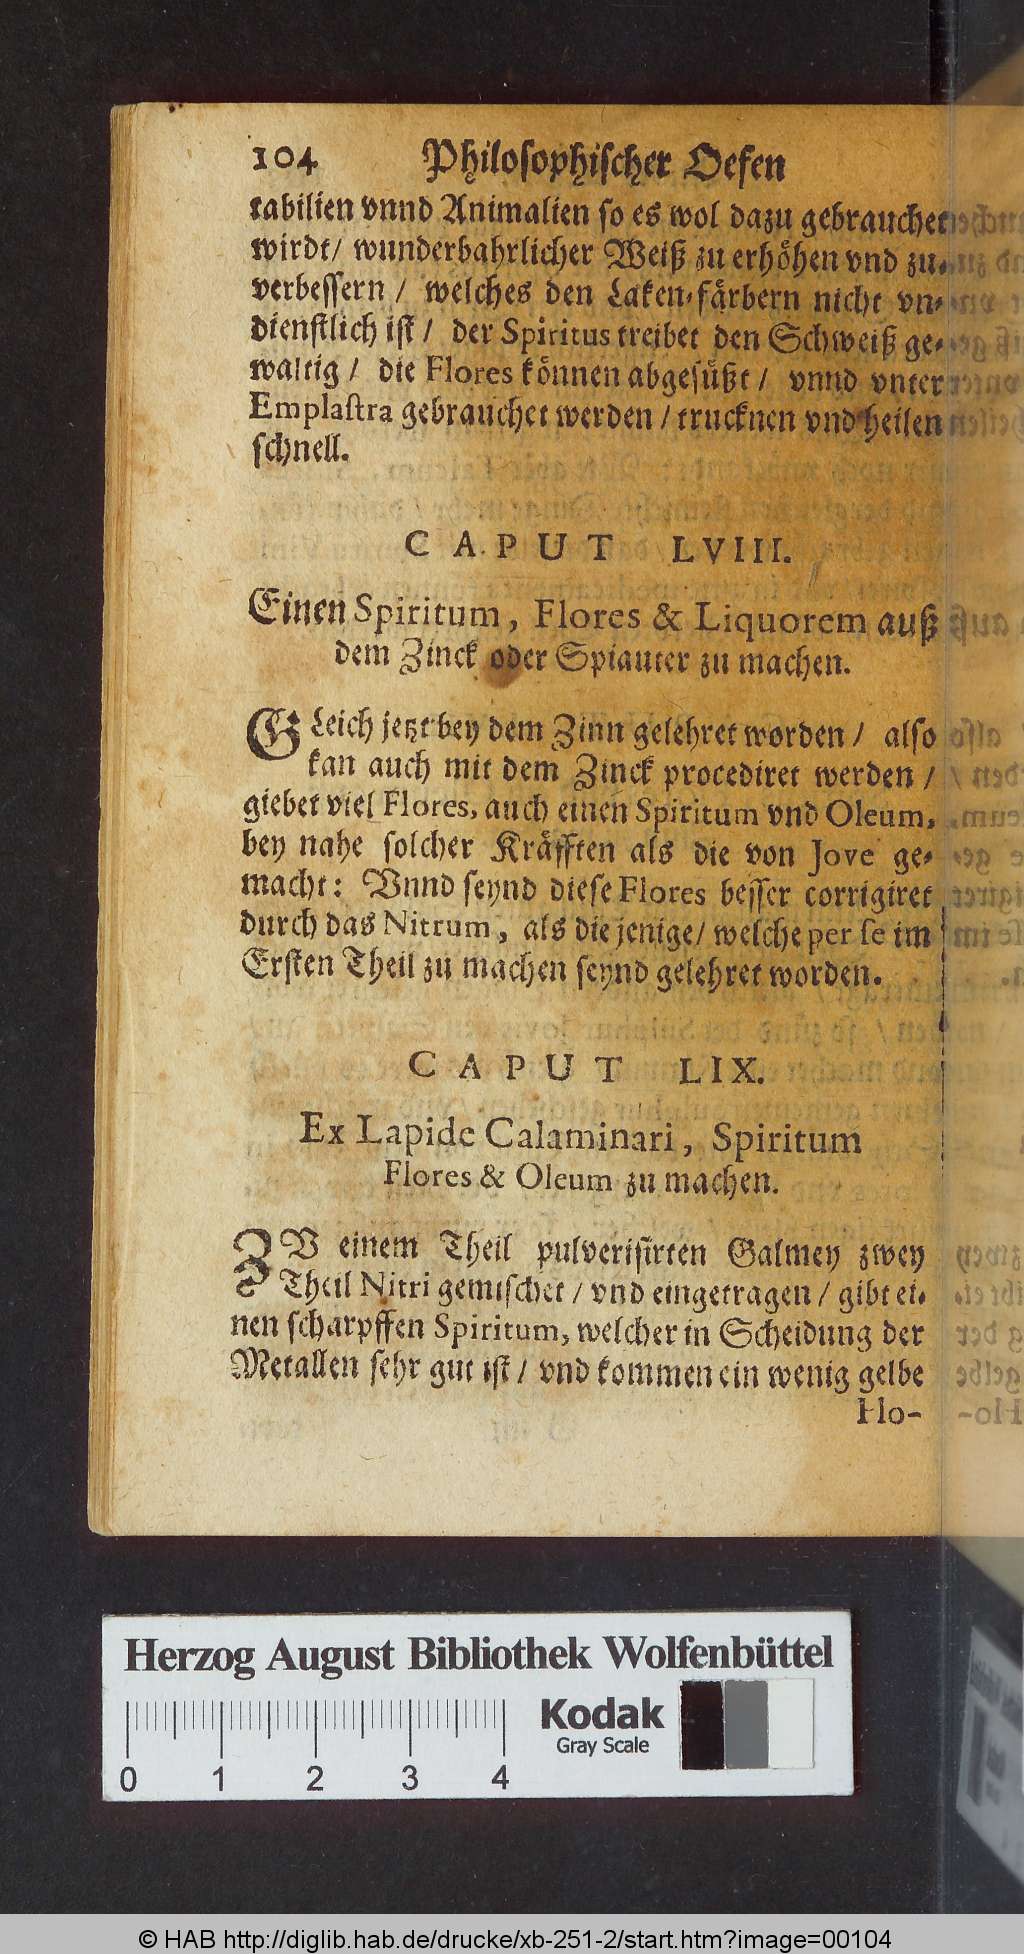 104 Philosophischer Oefen
tabilien vnnd Animalien so es wol dazu gebrauchet
wirdt / wunderbahrlicher Weiß zu erhöhen vnd zu-
verbessern / welches den Laken-färbern nicht vn-
dienstlich ist / der Spiritus treibet den Schweiß ge-
waltig / die Flores können abgesüßt / vnnd vnter
Emplastra gebrauchet werden / trucknen vnd heilen
schnell.
CAPUT LVIII.
Einen Spiritum, Flores & Liquorem auß
dem Zinck oder Spiauter zu machen.
GLeich jetzt bey dem Zinn gelehret worden / also
kan auch mit dem Zinck procediret werden /
giebet viel Flores, auch einen Spiritum vnd Oleum,
bey nahe solcher Kräfften als die von Jove ge-
macht: Vnnd seynd diese Flores besser corrigiret
durch das Nitrum, als die jenige / welche per se im
Ersten Theil zu machen seynd gelehret worden.
CAPUT LIX.
Ex Lapide Calaminari, Spiritum
Flores & Oleum zu machen.
ZV einem Theil pulverisirten Galmey zwey
Theil Nitri gemischet / vnd eingetragen / gibt ei-
nen scharpffen Spiritum, welcher in Scheidung der
Metallen sehr gut ist / vnd kommen ein wenig gelbe
Flo-
Herzog August Bibliothek Wolfenbüttel
Kodak
Gray Scale
0 1 2 3 4
© HAB http://diglib.hab.de/drucke/xb-251-2/start.htm?image=00104